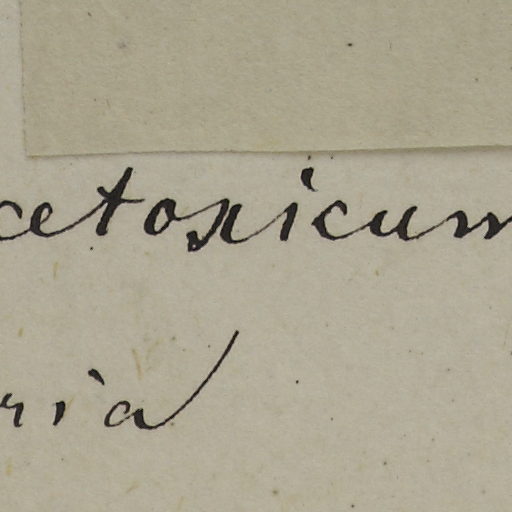 cetoxicum
ria